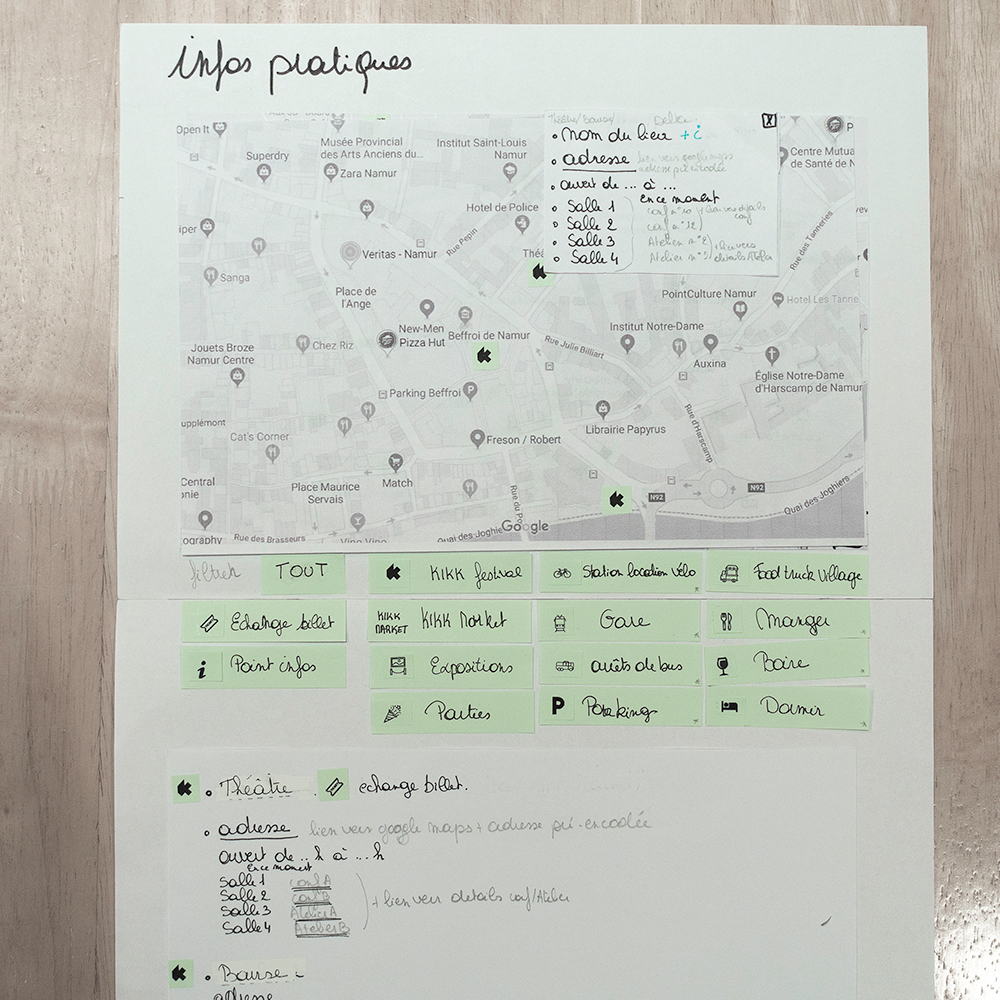 infos pratiques
Open It
Superdry
Musée Provincial
des Arts Anciens du...
Zara Namur
Institut Saint-Louis
Namur
Hotel de Police
Rue Pepin
Veritas - Namur
Sanga
Place de
l'Ange
New-Men
Pizza Hut
Beffroi de Namur
Chez Riz
Jouets Broze
Namur Centre
Parking Beffroi
Cat's Corner
Freson / Robert
Match
Place Maurice
Servais
Central
Rue des Brasseurs
Rue Julie Billiart
Institut Notre-Dame
PointCulture Namur
Hotel Les Tanne
Auxina
Église Notre-Dame
d'Harscamp de Namur
Librairie Papyrus
Rue d'Harscamp
Rue des Tanneries
Centre Mutua
de Santé de N
N92
N92
Quai des Joghiers
Quai des Joghie
Google
X
nom du lieu + i
adresse lien vers google maps
adresse pré encodée
ouvert de ... à ...
En ce moment
Salle 1
Salle 2
Salle 3
Salle 4
filtrer TOUT
KIKK festival
Station location vélo
Food truck village
Echange billet
KIKK MARKET KIKK Market
Gare
Manger
i Point infos
Expositions
arrêts de bus
Boire
Parties
P Parking
Dormir
Théâtre echange billet.
adresse lien vers google maps + adresse pré-encodée
ouvert de ... h à ... h
En ce moment
Salle 1 conf A
Salle 2 conf B
Salle 3 Atelier A
Salle 4 Atelier B
+ lien vers details conf/Atelier
Bourse
adresse